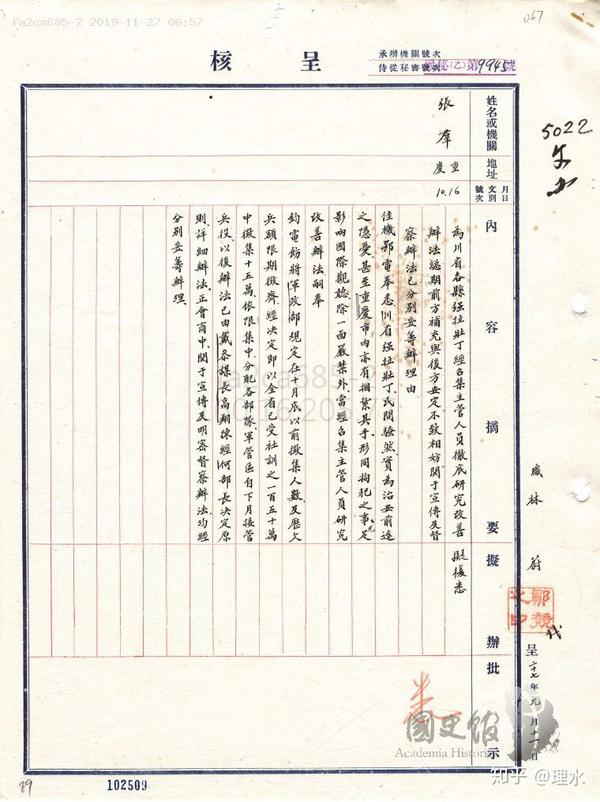 Fa2ca685-2 2019-11-27 06:57
067
呈核
承辦機關號次
侍從秘書號次 侍秘(乙)第9945號
5022
姓名或機關
張羣
地址
重慶
月日
文別
號次
10.16
內容摘要
為川省各縣強拉壯丁經召集主管人員徹底研究改善
辦法總期前方補充與後方安定不致相妨關于宣傳及督
察辦法已分別妥籌辦理由
佳機鄂電奉悉川省强拉壯丁民間騷然實為治安前途
之隱憂甚至重慶市內亦有捆綁其手形同拘犯之事尤足
影响國際觀聽除一面嚴禁外當經召集主管人員研究
改善辦法嗣奉
鈞電飭將軍政部規定在十月底以前徵集人數及歷欠
兵額限期徵齊經决定即以全省已受社訓之一百五十萬
中徵集十五萬依限集中分配各部隊軍管區自下月接管
兵役以後辦法已由戴參謀長高翔陳經何部長决定原
則詳細辦法正會商中關于宣傳及明密督察辦法均經
分別妥籌辦理
擬辦
擬復悉
批示
悉
職林蔚
代
呈
二十七年
月十一日
fa2ca685-2
國史館
Academia Historica
知乎 @理水
89
102509